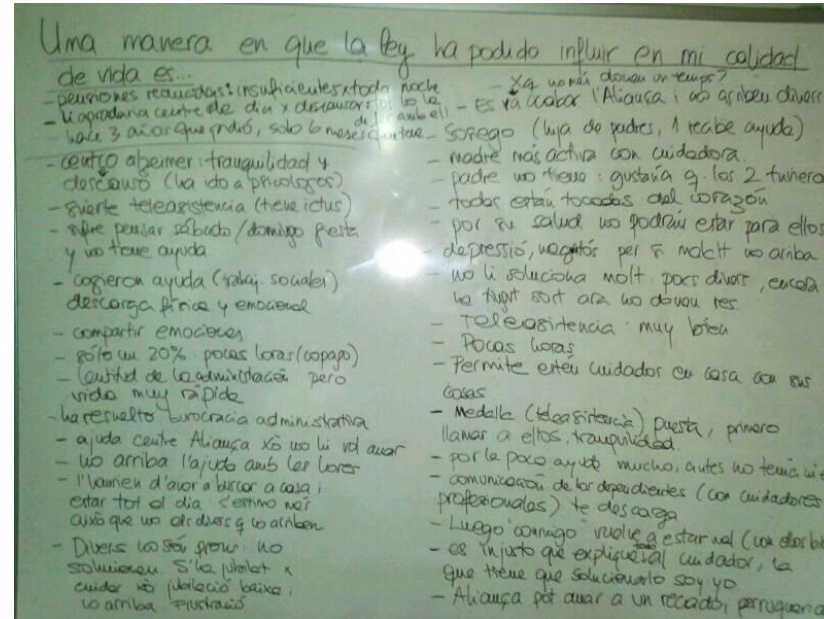 Una manera en que la ley ha podido influir en mi calidad
de vida es...
- pensiones reducidas: insuficientes x toda noche
- li agradaria centre de dia x descansar
- hace 3 años que pidió, solo 6 meses
- centro alzeimer: tranquilidad y
descanso (ha ido a psicologos)
- suerte teleasistencia (tiene ictus)
- pensar sábado/domingo fiesta
y no tiene ayuda
- cogieron ayuda (trabaj. sociales)
descarga física y emocional
- compartir emociones
- sólo un 20% pocas horas (copago)
- lentitud de la administración pero
vida muy rápida
- ha resuelto burocracia administrativa
- ajuda centre Aliança xò no li vol anar
- no arriba l'ajuda amb les hores
- l'haurien d'anar a buscar a casa i
estar tot el dia. s'estima més
això que no els diners q no arriben
- Diners no són prou: no
solucionen. S'ha jubilat x
cuidar xò jubilació baixa:
no arriba. Frustració
- Xq només donen un temps?
- Es va acabar l'Aliança i no arriben diners
- Sorego (hija de padres, 1 recibe ayuda)
- madre más activa con cuidadora.
- padre no tiene: gustaría q. los 2 tuviera
- todos están tocados del corazón
- por su salud no podrán estar para ellos
- depressió, per a molt no arriba
- no li soluciona molt. pocs diners, encara
ha tingut sort ara no donen res.
- Teleasistencia: muy bien
- Pocas horas
- Permite estén cuidados en casa con sus
cosas
- Medalla (teleasistencia) puesta, primero
llamar a ellos, tranquilidad.
- por la poco ayuda mucho, antes no tenía
- comunicación de los dependientes (con cuidadores
profesionales) te descarga
- Luego "conmigo" vuelve a estar mal
- es injusto que explique al cuidador, la
que tiene que solucionarlo soy yo
- Aliança pot anar a un recado, perruqueria